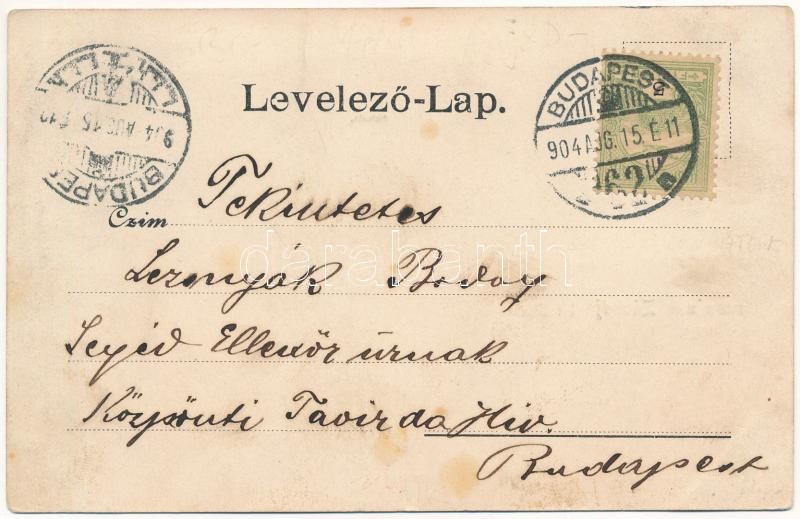 Levelező-Lap.
BUDAPEST
904 AUG. 15. E 11
62
BUDAPES
904 AUG 15 E 12
Czim Tekintetes
Leznyák Bodog
Segéd Ellenőr úrnak
Központi Távirda Hiv.
Budapest
darabanth